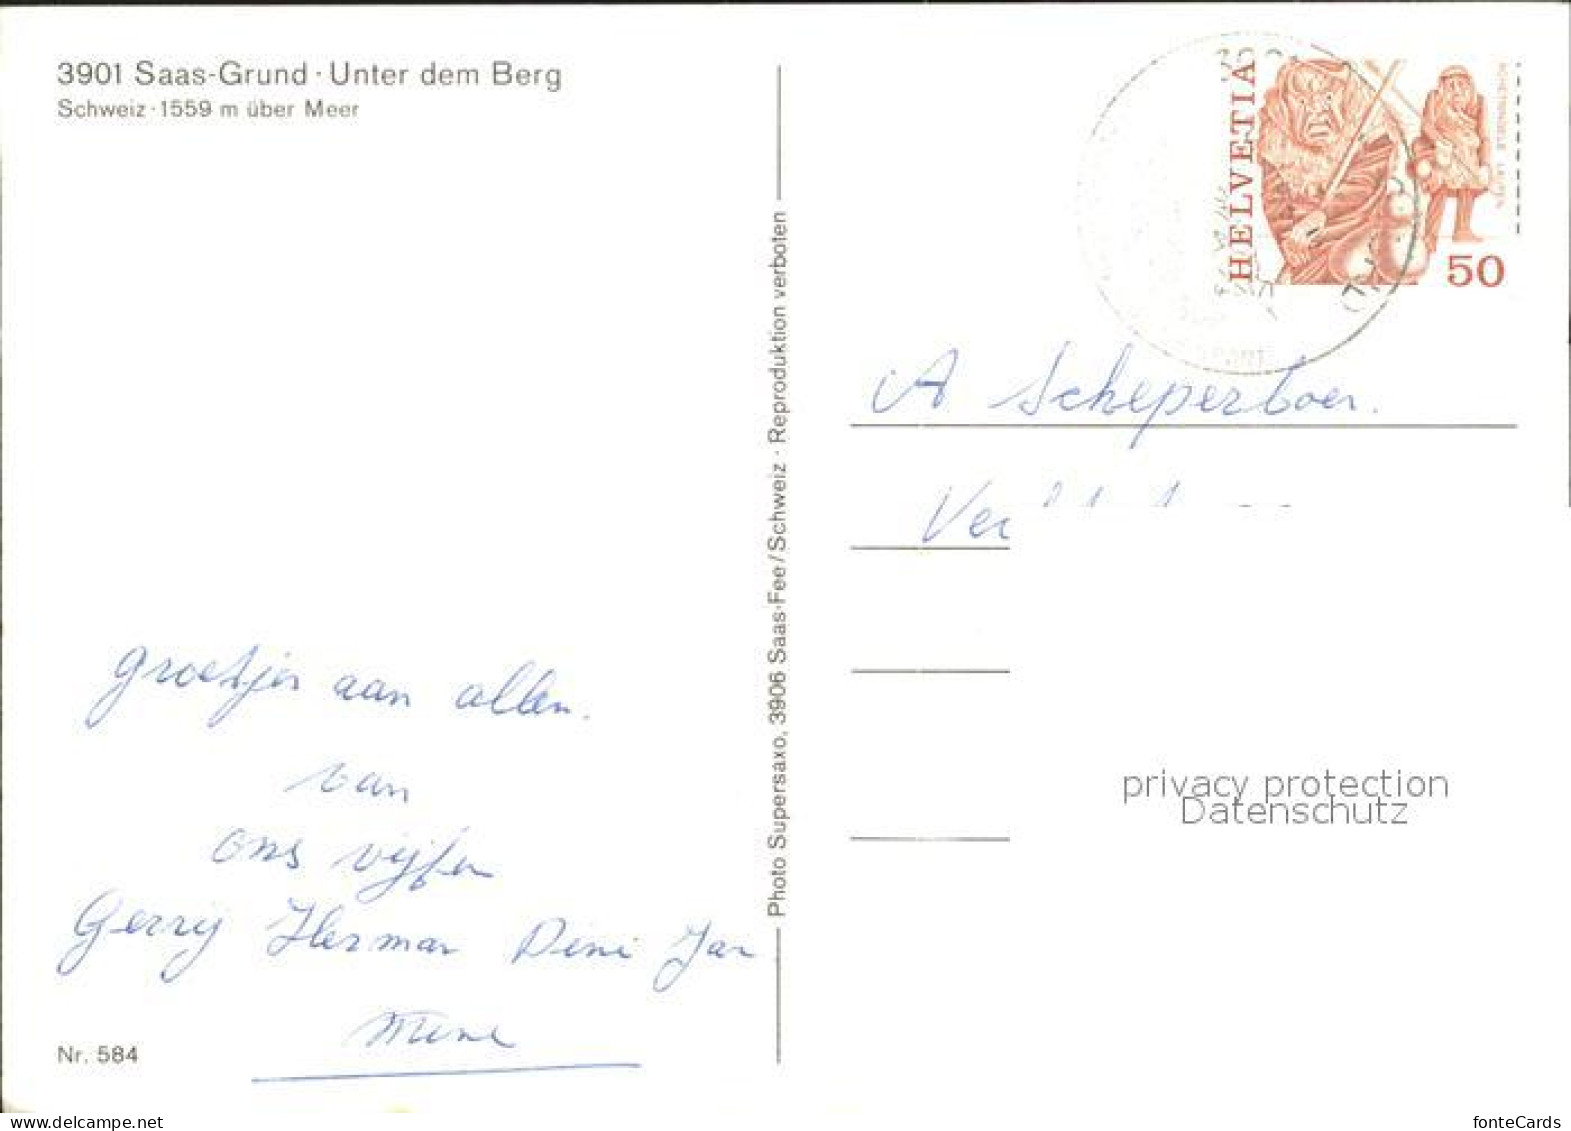 3901 Saas-Grund · Unter dem Berg
Schweiz · 1559 m über Meer
HELVETIA
50
A Scheperboer.
groetjes aan allen.
van
ons vijfen
Gerrij Herman Dini Jan
Mene
Nr. 584
Photo Supersaxo, 3906 Saas-Fee / Schweiz · Reproduktion verboten
privacy protection
Datenschutz
www.delcampe.net
fonteCards